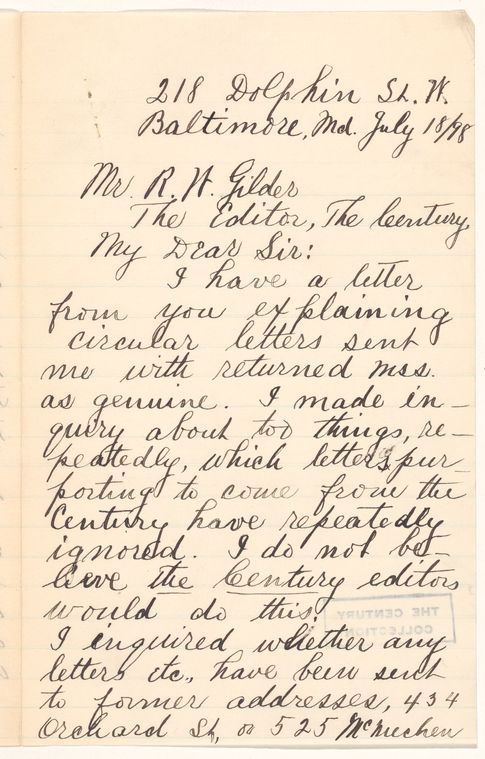 218 Dolphin St. W.
Baltimore, Md. July 18/98
Mr. R. W. Gilder
The Editor, The Century,
My Dear Sir:
I have a letter
from you explaining
circular letters sent
me with returned mss.
as genuine. I made in-
quiry about too things, re-
peatedly, which letters pur-
porting to come from the
Century have repeatedly
ignored. I do not be-
lieve the Century editors
would do this.
THE CENTURY
COLLECTION
I inquired whether any
letters etc., have been sent
to former addresses, 434
Orchard St, or 525 McMechen